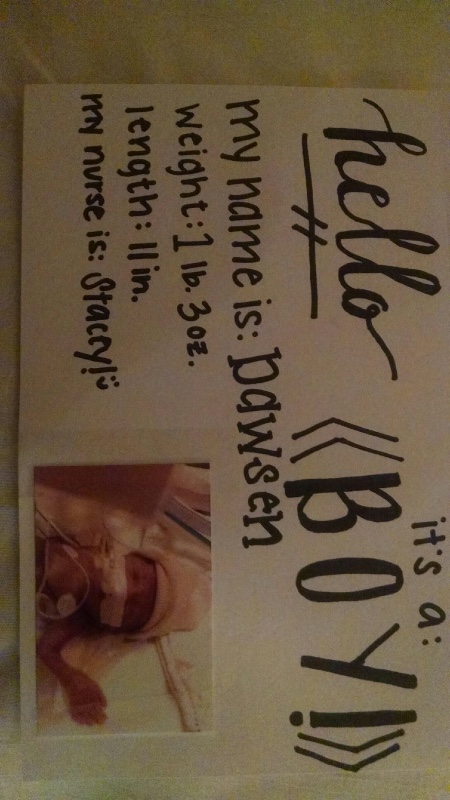 hello
it's a:
《BOY!》
my name is: Dawsen
weight: 1 lb. 3 oz.
length: 11 in.
my nurse is: Stacey! :)